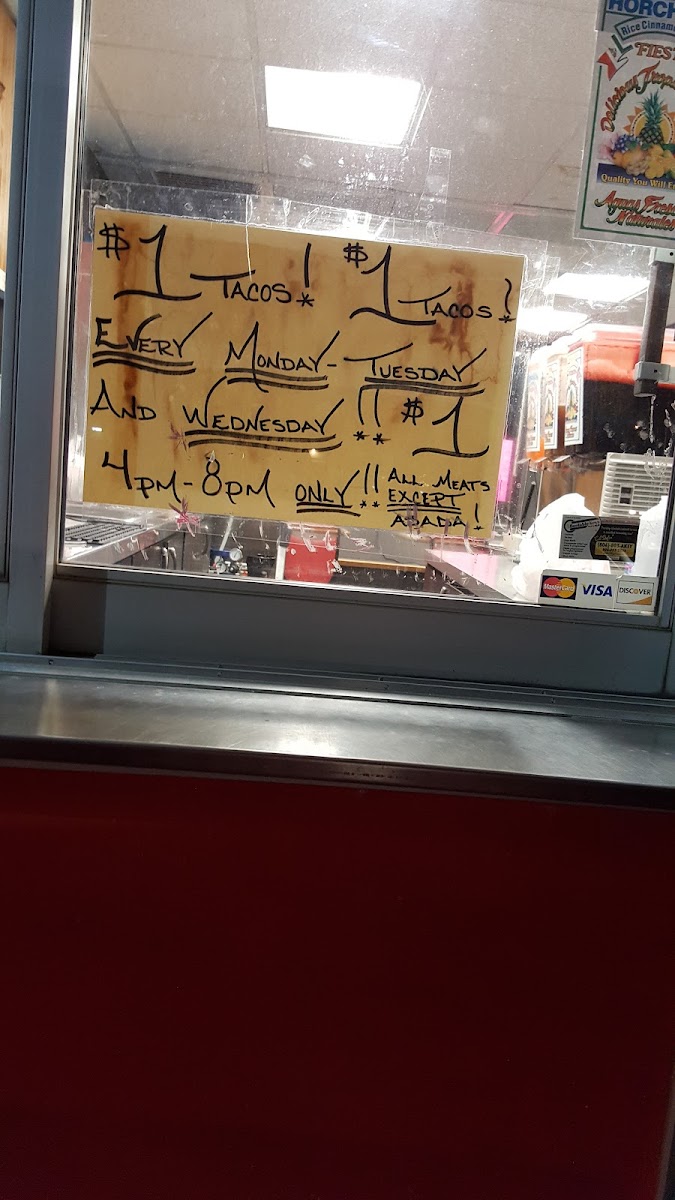 $1 TACOS! $1 TACOS!
EVERY MONDAY-TUESDAY
AND WEDNESDAY!! $1
4PM-8PM ONLY!! ALL MEATS
EXCEPT
ASADA!
HORCH
Rice Cinnam
FIEST
Delicious
Quality You Will F
Aguas Fresc
Naturales
MasterCard
VISA
DISCOVER